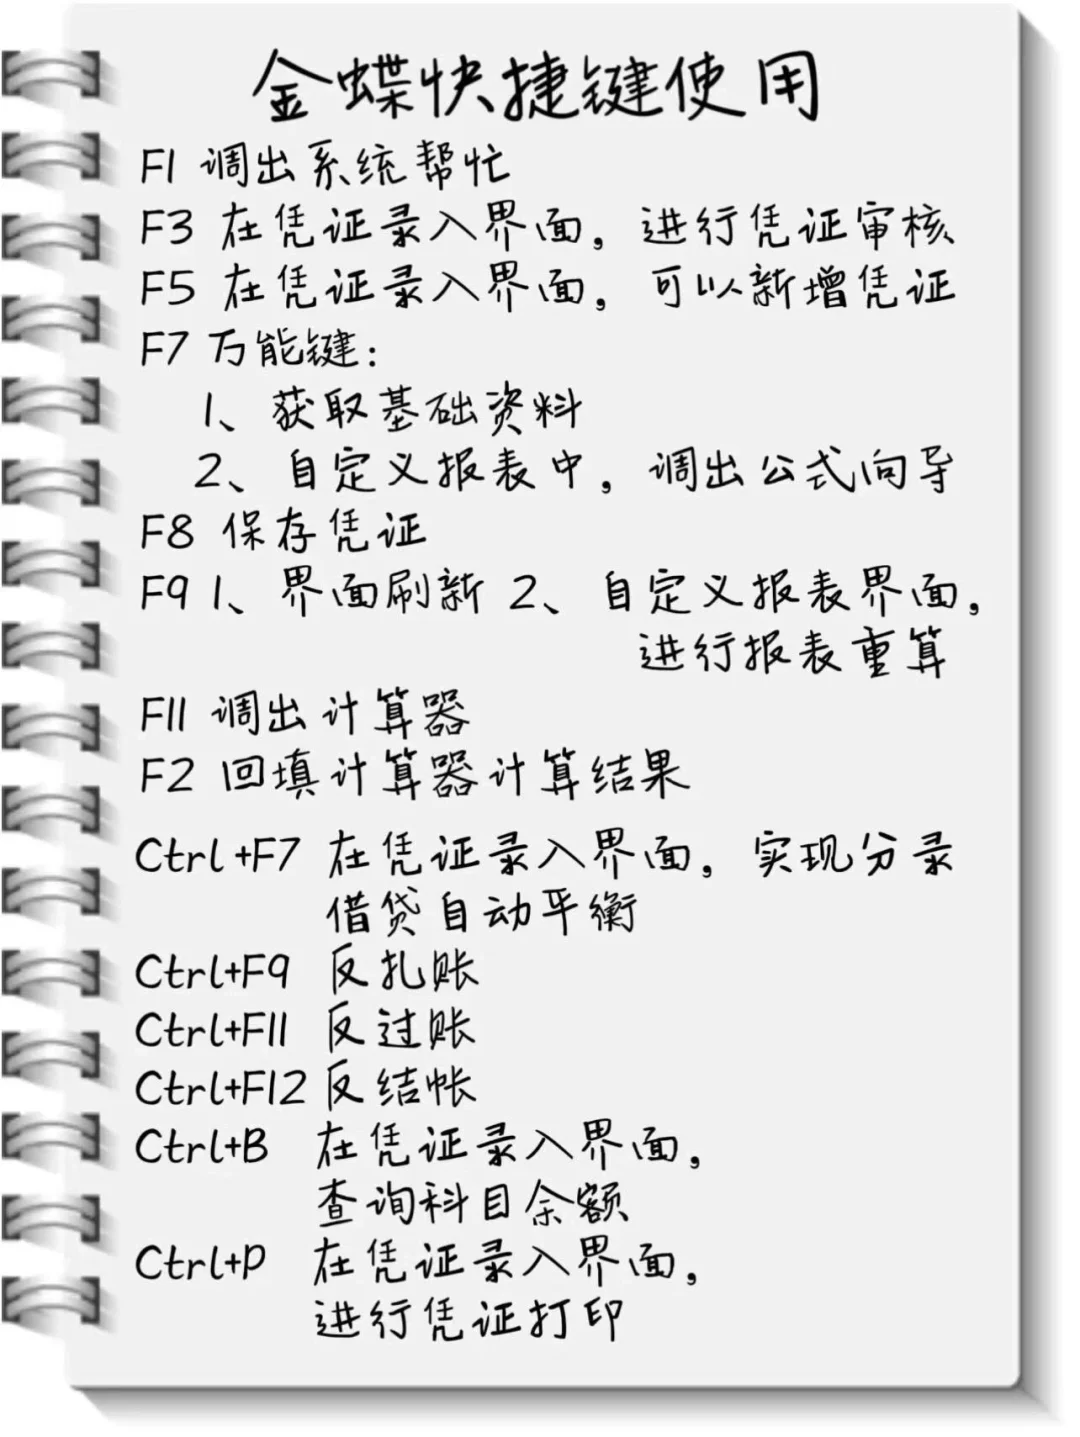 金蝶快捷键使用
F1 调出系统帮忙
F3 在凭证录入界面，进行凭证审核
F5 在凭证录入界面，可以新增凭证
F7 万能键：
1、获取基础资料
2、自定义报表中，调出公式向导
F8 保存凭证
F9 1、界面刷新 2、自定义报表界面，
进行报表重算
F11 调出计算器
F2 回填计算器计算结果
Ctrl+F7 在凭证录入界面，实现分录
借贷自动平衡
Ctrl+F9 反扎账
Ctrl+F11 反过账
Ctrl+F12 反结帐
Ctrl+B 在凭证录入界面，
查询科目余额
Ctrl+P 在凭证录入界面，
进行凭证打印